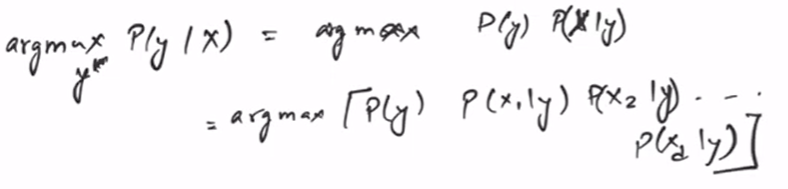 argmax P(y | X) = argmax P(y) P(X|y)
y
= argmax [P(y) P(x₁|y) P(x₂|y) . - - .
P(x_d|y)]